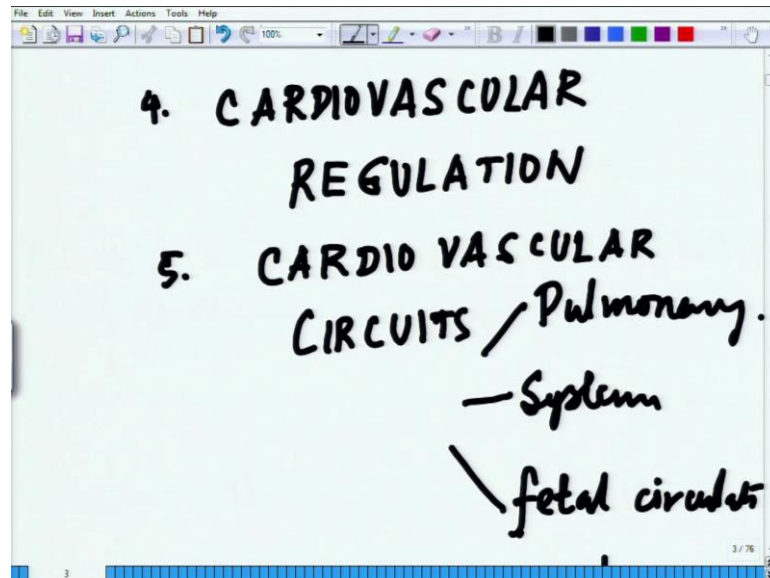 File Edit View Insert Actions Tools Help
100%
4. CARDIOVASCULAR
REGULATION
5. CARDIO VASCULAR
CIRCUITS / Pulmonary.
— System
\ fetal circulati
3 / 76
3